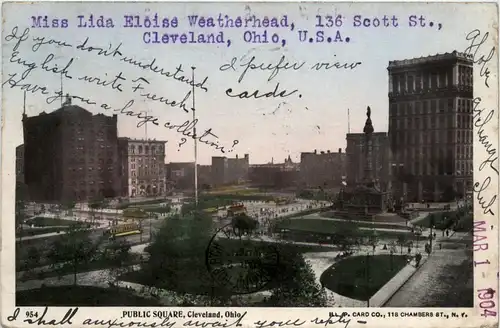 Miss Lida Eloise Weatherhead, 136 Scott St.,
Cleveland, Ohio, U.S.A.
If you don't understand
English write French.
Have you a large collection?
I prefer view
cards.
Globe Exchange Club
MAR 1 - 1904
954 PUBLIC SQUARE, Cleveland, Ohio
ILL. P. CARD CO., 118 CHAMBERS ST., N. Y.
I shall anxiously await your reply -